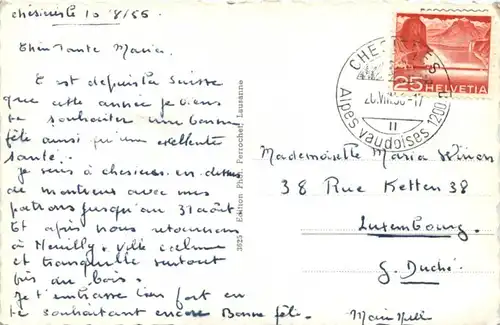 chésières 10/8/56
Chère Tante Maria.
C est depuis la Suisse
que cette année je viens
te souhaiter une bonne
fête ainsi qu'une excellente
Santé.
Je suis à chesières en dessus
de montreux avec mes
patrons jusqu'au 31 août
Et après nous retournons
à Neuilly. Ville calme
et tranquille surtout
près du bois.
Je t'embrasse bien fort en
te souhaitant encore Bonne fête.
3625 Edition Phot. Perrochet, Lausanne
25 HELVETIA
Alpes vaudoises 1200
II
Mademoiselle Maria
38 Rue Ketten 38
Luxembourg.
G. Duché.